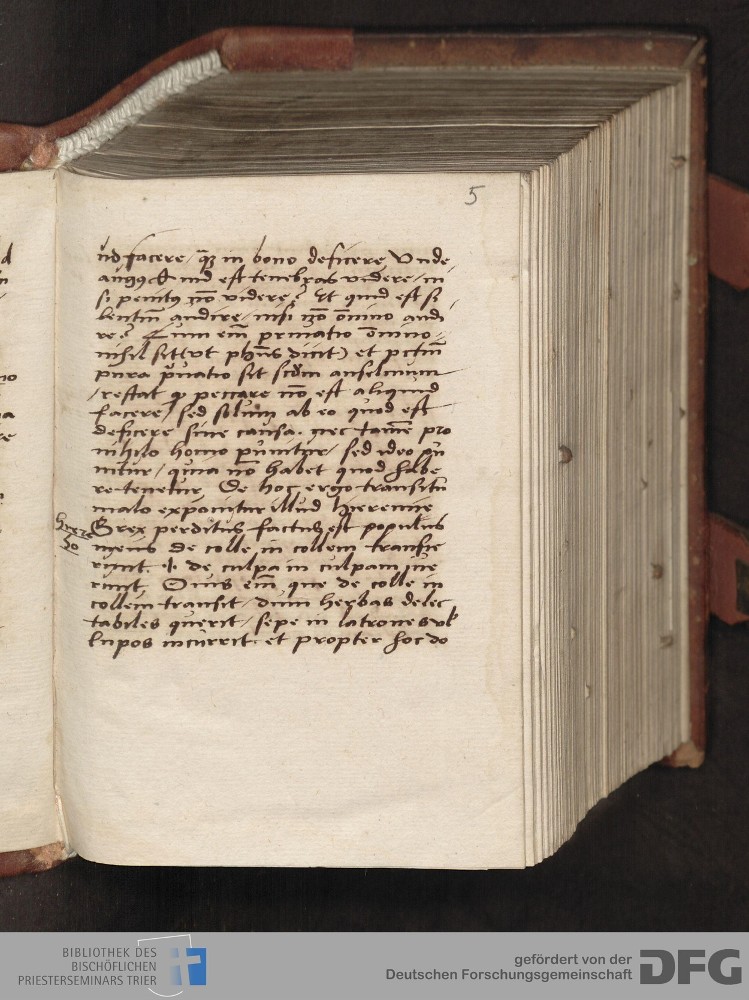 5
facere / quã in bono deficere Vnde
est tenebras videre / ni
si penitus nõ videre? Et quid est si
lentiũ audire / nisi nõ õmino audi
re? Cum em̃ priuatio õmino
nihil sit (vt ph̃us dicit) et pctm̃
pura p̃uatio sit scdm̃ anselmum
/ restat q peccare nõ est aliquid
facere / sed solum ab eo quod est
deficere sine causa. nec tamẽ pro
nihilo homo punitur / sed ideo pu
nitur / quia nõ habet quod habe
re tenetur. De hoc ergo transitu
malo exponitur illud hieremie
Grex perditus factus est populus
meus de colle in collem transie
runt .i. de culpa in culpam iue
runt. Ouis em̃ que de colle in
collem transit / dum herbas delec
tabiles querit / sepe in latrones vl
lupos incurrit. et propter hoc do
BIBLIOTHEK DES
BISCHÖFLICHEN
PRIESTERSEMINARS TRIER
gefördert von der
Deutschen Forschungsgemeinschaft
DFG